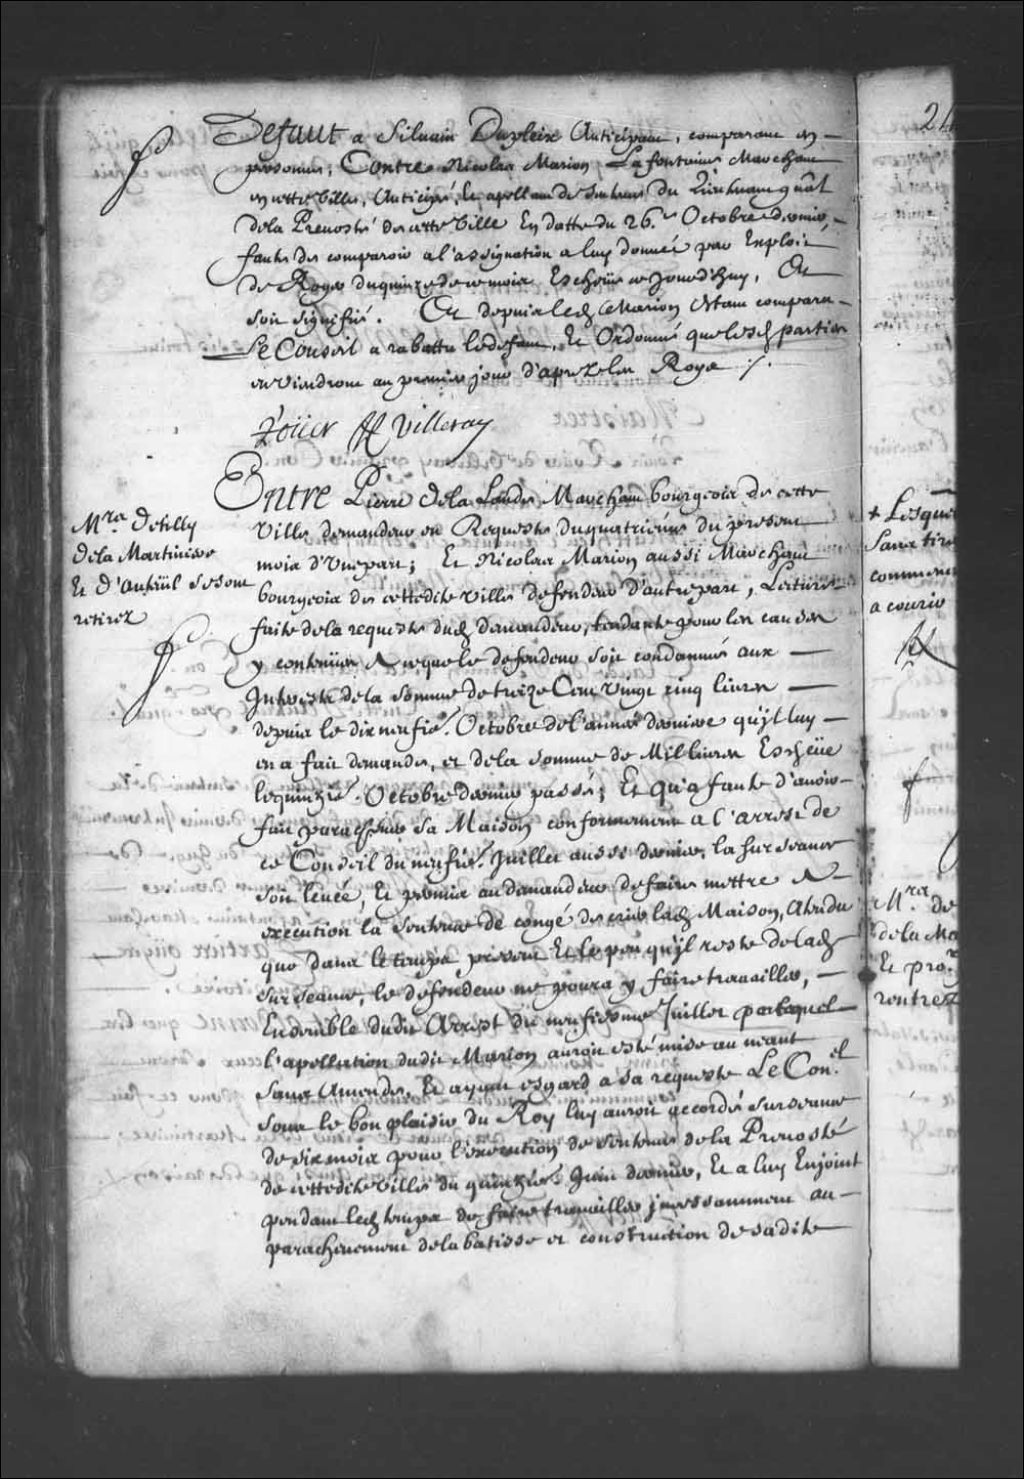 Defaut a Siluain Dupleix Anticipant, comparant en
personne, Contre Nicolas Marion La fontaine Marchant
en cette Ville, Anticipé, Et apellant de Sentence du Lieutenant gñal
dela Preuosté de cette Ville En datte du 26.e Octobre dernier,
faute de comparoir a l'assignation a luy donneé par Exploit
de Roger du quinze de ce mois Escheüe ce Jourd'huy, Et
soit signifié. Et depuis led Marion Estant comparu
Le Conseil a rabattu led defaut, Et Ordonné que lesd parties
en viendront au premier jour d'aprez les Roys ./.
Roüer Villeray
Entre Pierre dela Lande Marchant bourgeois de cette
Ville demandeur en Requeste du quatriéme du present
mois d'Vne part; Et Nicolas Marion aussi Marchant
bourgeois de cettedite Ville defendeur d'autre part, Lecture
faite dela requeste dud demandeur, tendante pour les causes
y contenües A ce que le defendeur soit condamné aux
Interests dela somme de treize Cent vingt cinq liures
depuis le dix neufié. Octobre de l'année derniere qu'jl luy
en a fait demande, et dela somme de Mil liures Escheüe
le quinzié. Octobre dernier passé; Et qu'a faute d'auoir
fait parachever sa Maison conformement a l'arrest de
ce Conseil du neufié. Juillet aussi dernier, la surseance
soit leuée, Et permis au demandeur de faire mettre A
execution la Sentence de congé de crier lad Maison, Atendu
que dans le temps present Et le peu qu'jl reste de lad
surseance, le defendeur ne poura y faire trauailler,
Ensemble dudit Arrest du neufiesme Juillet par lequel
l'apellation dudit Marion auroit esté mise au neant
sans Amende, Et ayant esgard a sa requeste Le Con.el
sous le bon plaisir du Roy luy auroit accordé surseance
de six mois pour l'execution de Sentence dela Preuosté
de cettedite Ville du quinzié. Juin dernier, Et a luy Enjoint
pendant led temps de faire trauailler jncessamment au
parachevement dela batisse et construction de sadite
Mrs. de tilly
dela Martiniere
Et d'Auteüil se sont
retirez
24
+ Lesque
sans tire
commence
a courir
Mrs. de
de la Ma
Et pro.r
rentrez